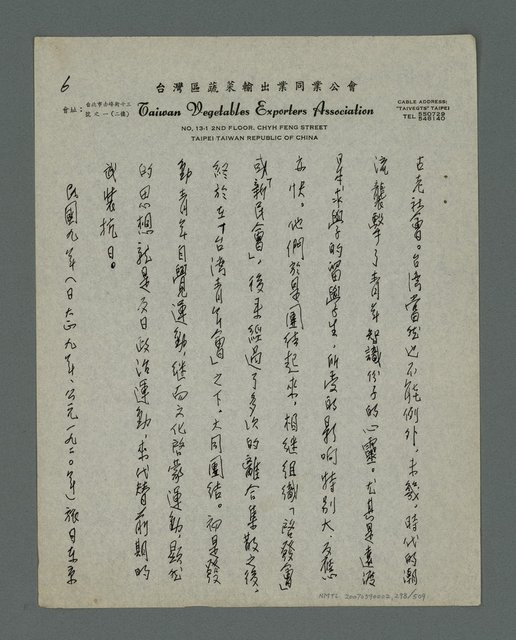 6
台灣區蔬菜輸出業同業公會
會址：台北市赤峰街十三號之一(二樓)
Taiwan Vegetables Exporters Association
NO, 13-1 2ND FLOOR, CHYH FENG STREET
TAIPEI TAIWAN REPUBLIC OF CHINA
CABLE ADDRESS:
"TAIVEGTS" TAIPEI
TEL 550729
546140
古老社會。台湾當然也不能例外，未幾，時代的潮
流襲擊了青年知識份子的心靈。尤其是遠渡
是求學的留學生，所受的影响特別大、反應
亦快。他們於是團結起來，相継組織「啓發會」
或「新民會」，後来經過了多次的離合集散之後，
終於在「台湾青年會」之下，大同團結。初是發
動青年自覺運動，継而文化啓蒙運動，顯然
的思想就是反日政治運動，来代替前期的
武裝抗日。
民國九年（日大正九年、公元一九二〇年）旅日東京
NMTL 20070590002,278/509